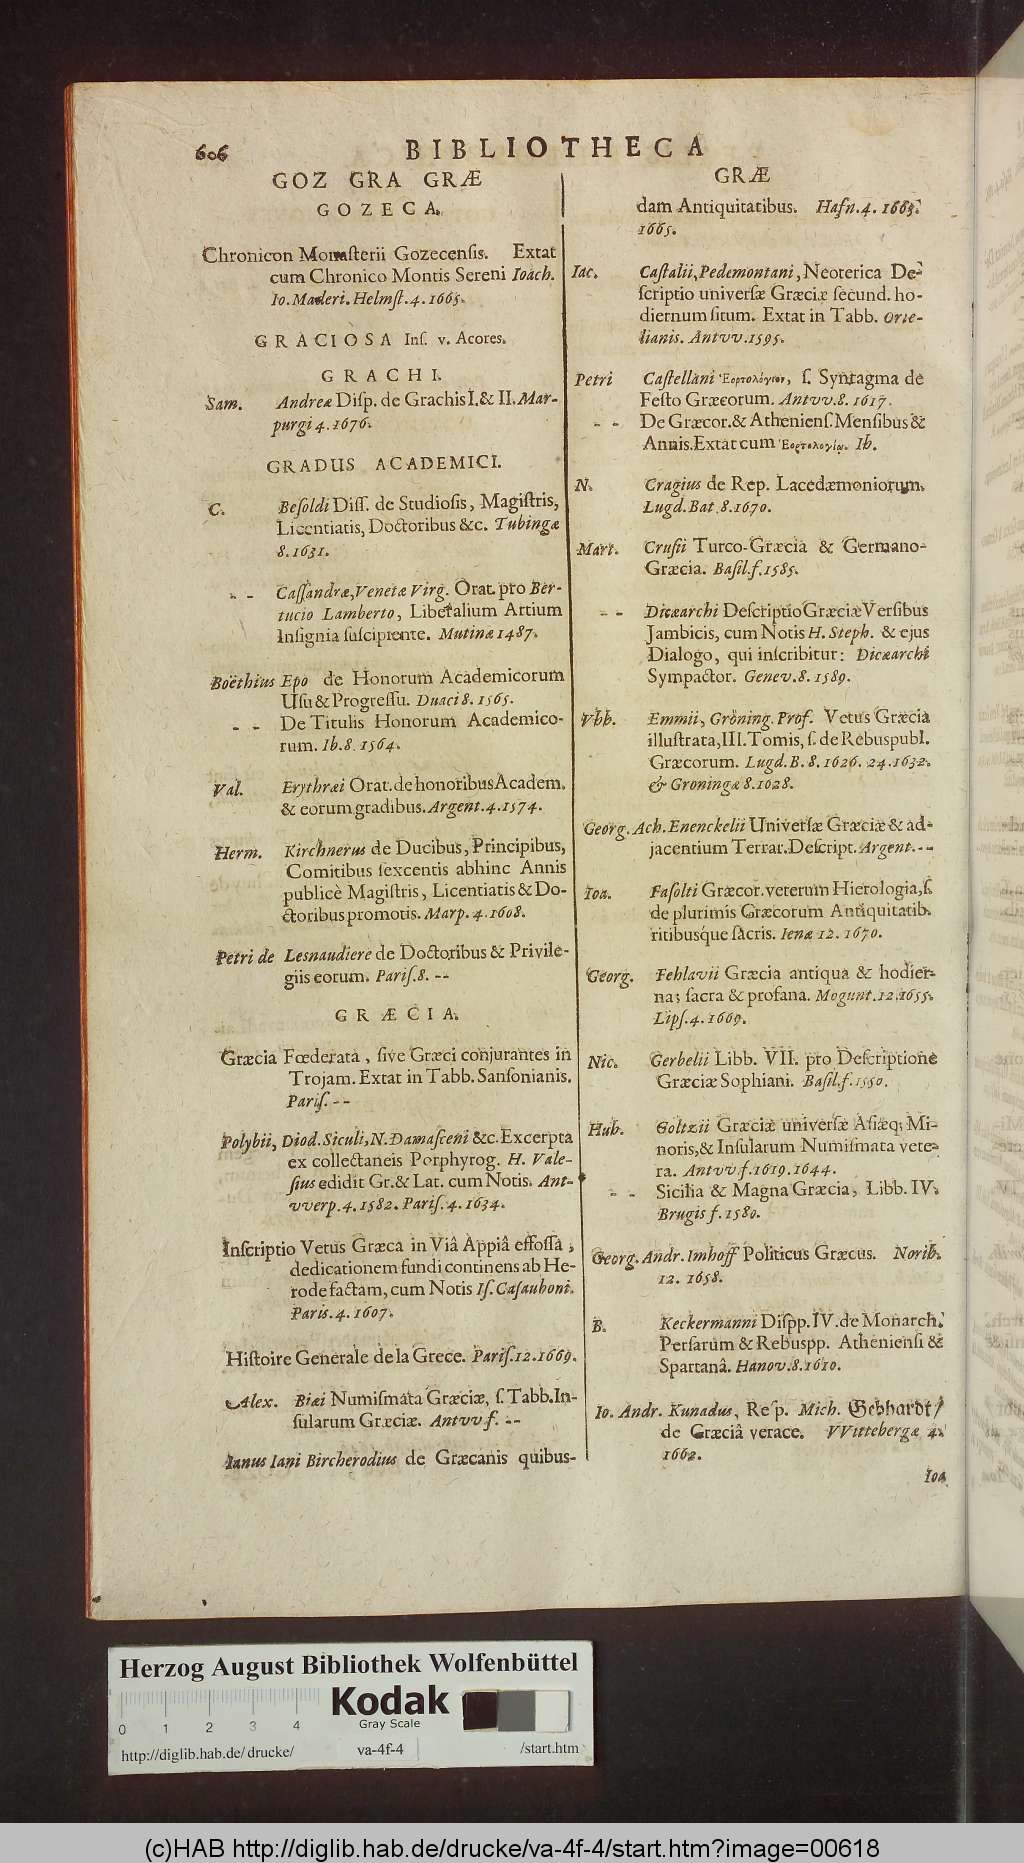 606
BIBLIOTHECA
GOZ GRA GRÆ
GOZECA.
Chronicon Monasterii Gozecensis. Extat
cum Chronico Montis Sereni Ioach.
Io. Maderi. Helmſt. 4. 1665.
GRACIOSA Inſ. v. Acores.
GRACHI.
Sam. Andreæ Diſp. de Grachis I. & II. Mar-
purgi 4. 1676.
GRADUS ACADEMICI.
C. Beſoldi Diſſ. de Studioſis, Magiſtris,
Licentiatis, Doctoribus &c. Tubingæ
8. 1631.
- - Caſſandræ, Venetæ Virg. Orat. pro Ber-
tucio Lamberto, Liberalium Artium
Inſignia ſuſcipiente. Mutinæ 1487.
Boëthius Epo de Honorum Academicorum
Uſu & Progreſſu. Duaci 8. 1565.
- - De Titulis Honorum Academico-
rum. Ib. 8. 1564.
Val. Erythræi Orat. de honoribus Academ.
& eorum gradibus. Argent. 4. 1574.
Herm. Kirchnerus de Ducibus, Principibus,
Comitibus ſexcentis abhinc Annis
publicè Magiſtris, Licentiatis & Do-
ctoribus promotis. Marp. 4. 1608.
Petri de Lesnaudiere de Doctoribus & Privile-
giis eorum. Pariſ. 8. --
GRÆCIA.
Græcia Fœderata, ſive Græci conjurantes in
Trojam. Extat in Tabb. Sanſonianis.
Pariſ. --
Polybii, Diod. Siculi, N. Damaſceni &c. Excerpta
ex collectaneis Porphyrog. H. Vale-
ſius edidit Gr. & Lat. cum Notis. Ant-
vverp. 4. 1582. Pariſ. 4. 1634.
Inſcriptio Vetus Græca in Viâ Appiâ effoſſa,
dedicationem fundi continens ab He-
rode factam, cum Notis Iſ. Caſauboni.
Paris. 4. 1607.
Hiſtoire Generale de la Grece. Pariſ. 12. 1669.
Alex. Biæi Numiſmata Græciæ, ſ. Tabb. In-
ſularum Græciæ. Antvv f. --
Ianus Iani Bircherodius de Græcanis quibus-
GRÆ
dam Antiquitatibus. Hafn. 4. 1663.
1665.
Iac. Caſtalii, Pedemontani, Neoterica De-
ſcriptio univerſæ Græciæ ſecund. ho-
diernum ſitum. Extat in Tabb. Orte-
lianis. Antvv. 1595.
Petri Caſtellani Ἑορτολόγιον, ſ. Syntagma de
Feſto Græcorum. Antvv. 8. 1617.
- - De Græcor. & Athenienſ. Menſibus &
Annis. Extat cum Ἑορτολογίῳ. Ib.
N. Cragius de Rep. Lacedæmoniorum.
Lugd. Bat 8. 1670.
Mart. Cruſii Turco-Græcia & Germano-
Græcia. Baſil. f. 1585.
- - Dicæarchi Deſcriptio Græciæ Verſibus
Jambicis, cum Notis H. Steph. & ejus
Dialogo, qui inſcribitur: Dicæarchi
Sympactor. Genev. 8. 1589.
Vbb. Emmii, Gröning. Prof. Vetus Græcia
illuſtrata, III. Tomis, ſ. de Rebuspubl.
Græcorum. Lugd. B. 8. 1626. 24. 1632.
& Groningæ 8. 1628.
Georg. Ach. Enenckelii Univerſæ Græciæ & ad-
jacentium Terrar. Deſcript. Argent. --
Ioa. Faſolti Græcor. veterum Hierologia, ſ.
de plurimis Græcorum Antiquitatib.
ritibusque ſacris. Ienæ 12. 1670.
Georg. Fehlavii Græcia antiqua & hodier-
na; ſacra & profana. Mogunt. 12. 1655.
Lipſ. 4. 1669.
Nic. Gerbelii Libb. VII. pro Deſcriptione
Græciæ Sophiani. Baſil. f. 1550.
Hub. Goltzii Græciæ univerſæ Aſiæq; Mi-
noris, & Inſularum Numiſmata vete-
ra. Antvv f. 1619. 1644.
- - Sicilia & Magna Græcia, Libb. IV.
Brugis f. 1580.
Georg. Andr. Imhoff Politicus Græcus. Norib.
12. 1658.
B. Keckermanni Diſpp. IV. de Monarch.
Perſarum & Rebuspp. Athenienſi &
Spartanâ. Hanov. 8. 1610.
Io. Andr. Kunadus, Reſp. Mich. Gebhardt/
de Græciâ verace. VVittebergæ 4.
1662.
Ioa
Herzog August Bibliothek Wolfenbüttel
0 1 2 3 4
Kodak
Gray Scale
http://diglib.hab.de/drucke/ va-4f-4 /start.htm
(c)HAB http://diglib.hab.de/drucke/va-4f-4/start.htm?image=00618